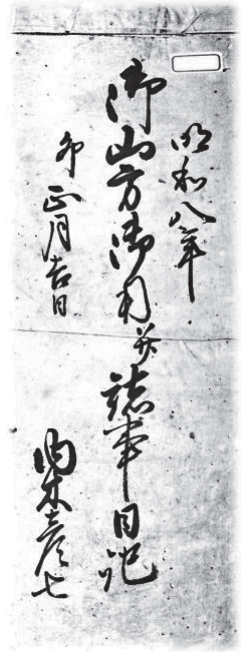 明和八年
御山方御用并諸事日記
卯正月吉日
内木彦七